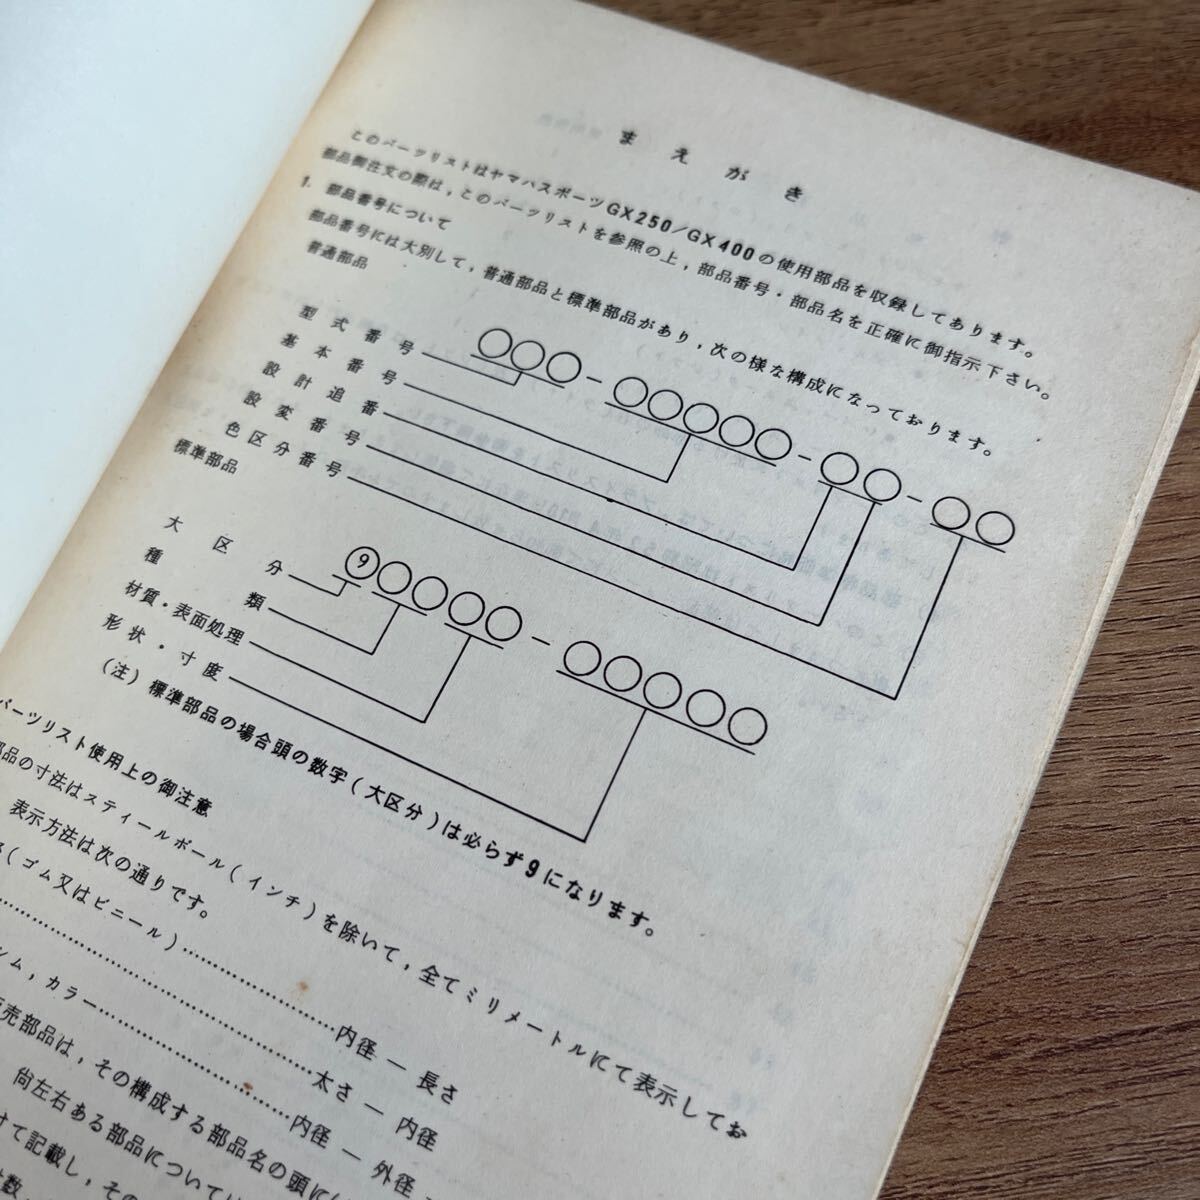 まえがき
このパーツリストはヤマハスポーツGX250／GX400の使用部品を収録してあります。
部品御注文の際は，このパーツリストを参照の上，部品番号・部品名を正確に御指示下さい。
1. 部品番号について
部品番号には大別して，普通部品と標準部品があり，次の様な構成になっております。
普通部品
○○○－○○○○○－○○－○○
型式番号
基本番号
設計追番
設変番号
色区分番号
標準部品
⑨○○○○○－○○○○○
大区分
種類
材質・表面処理
形状・寸度
(注) 標準部品の場合頭の数字(大区分)は必らず9になります。
パーツリスト使用上の御注意
部品の寸法はスティールボール(インチ)を除いて，全てミリメートルにて表示してお
表示方法は次の通りです。
(ゴム又はビニール)……………………内径 ― 長さ
……………………太さ ― 内径
ム，カラー……………………内径 ― 外径 ―
販売部品は，その構成する部品名の頭に
尚左右ある部品については
けて記載し，その
数，